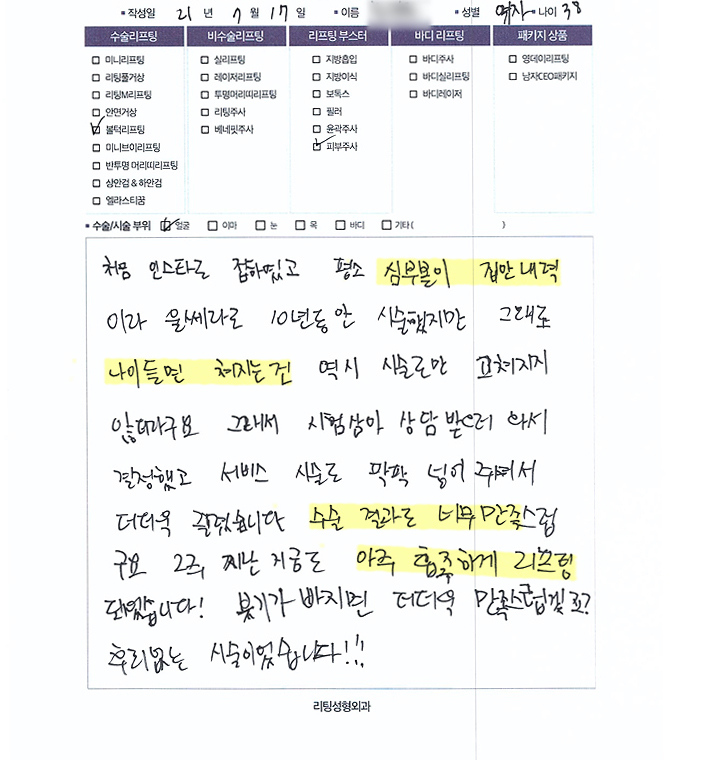 작성일 21 년 7 월 17 일 이름 성별 여자 나이 38
수술리프팅 비수술리프팅 리프팅 부스터 바디 리프팅 패키지 상품
미니리프팅 실리프팅 지방흡입 바디주사 영데이리프팅
리팅풀거상 레이저리프팅 지방이식 바디실리프팅 남자CEO패키지
리팅M리프팅 투명머리띠리프팅 보톡스 바디레이저
안면거상 리팅주사 필러
볼턱리프팅 베네핏주사 윤곽주사
미니브이리프팅 피부주사
반투명 머리띠리프팅
상안검 & 하안검
엘라스티꿈
수술/시술 부위 얼굴 이마 눈 목 바디 기타 ( )
처음 인스타로 접하였고 평소 심부볼이 집안 내력
이라 울쎄라로 10년동안 시술했지만 그대로
나이들면 쳐지는건 역시 시술로만 고쳐지지
않더라구요 그래서 시험삼아 상담 받으러 와서
결정했고 서비스 시술도 막팍 넣어 주셔서
더더욱 끌렸습니다 수술 결과도 너무 만족스럽
구요 2주 지난 지금도 아주 흡족하게 리프팅
되었습니다! 붓기가 빠지면 더더욱 만족스럽겠죠?
후회없는 시술이었습니다!!!
리팅성형외과